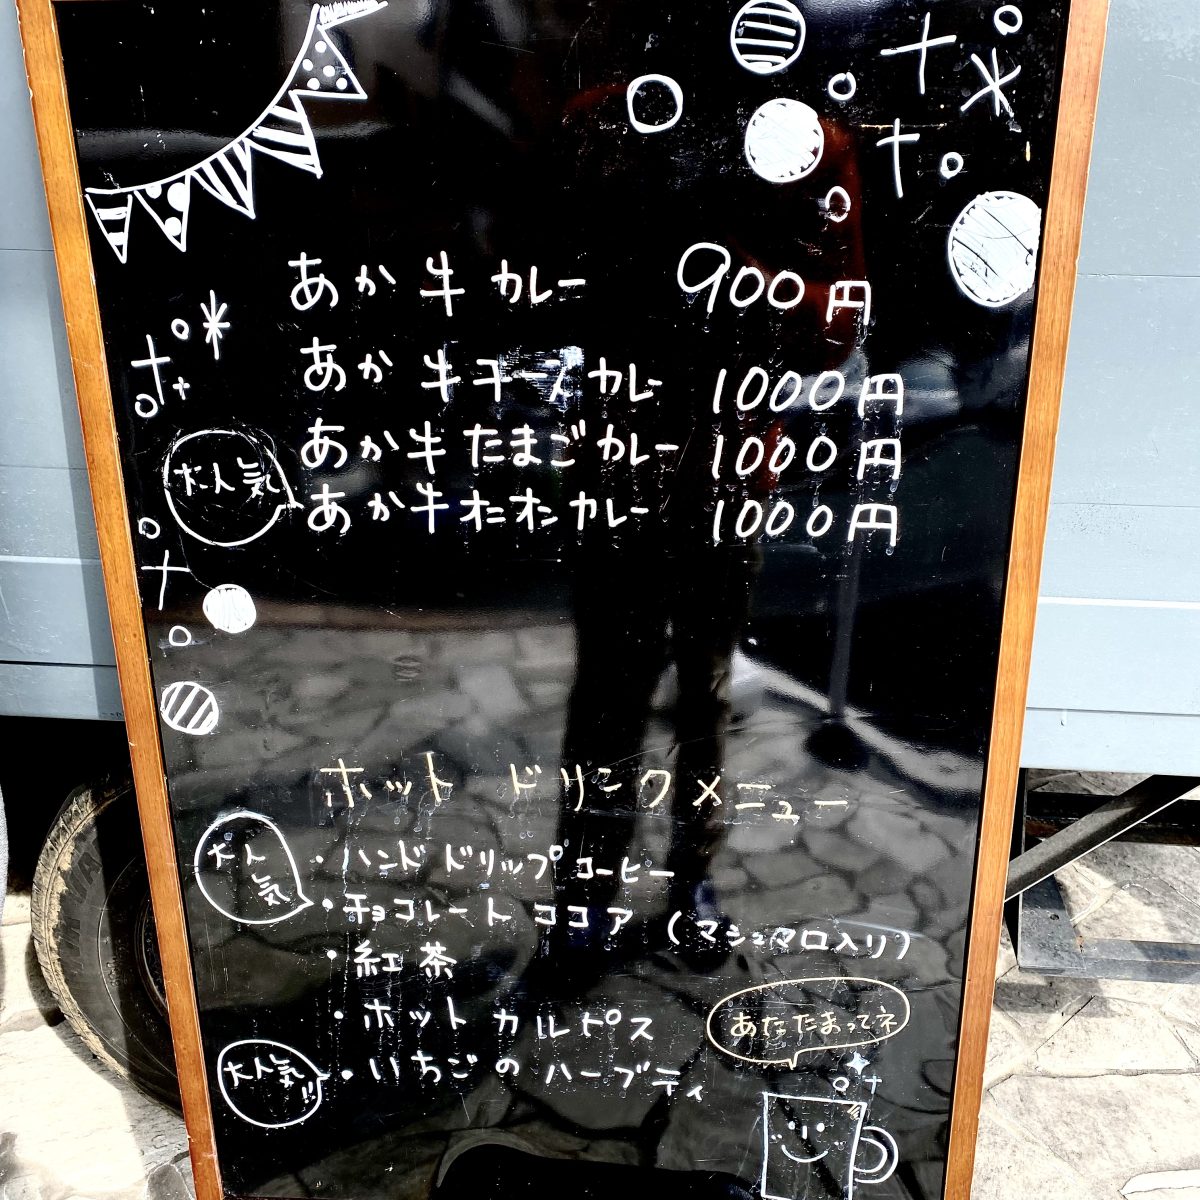 あか牛カレー 900円
あか牛チーズカレー 1000円
あか牛たまごカレー 1000円
大人気
あか牛オニオンカレー 1000円
ホットドリンクメニュー
大人気
・ハンドドリップコーヒー
・チョコレートココア (マシュマロ入り)
・紅茶
・ホットカルピス
あたたまってネ
大人気!!
・いちごのハーブティ